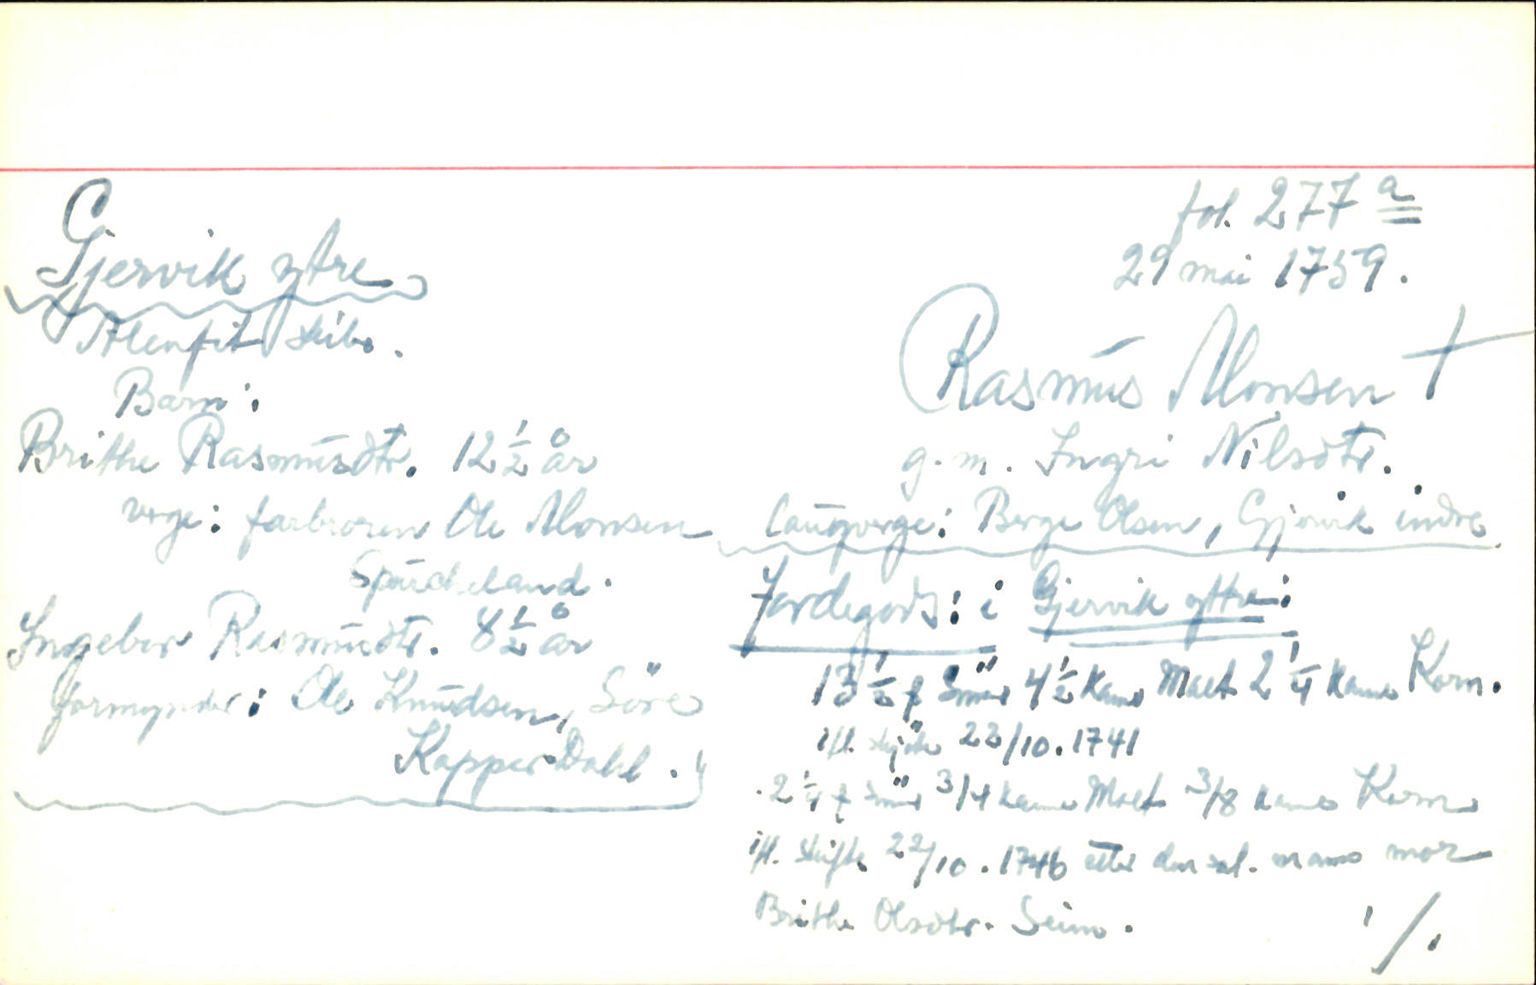 Gjervik ytre
Alenfit skibr.
Barn:
Brithe Rasmusdtr. 12 1/2 år
verge: farbroren Ole Monsen
Spurkeland.
Ingebor Rasmusdtr. 8 1/2 år
formynder: Ole Knudsen, Söre
Kapper-Dahl.
fol. 277 a
29 mai 1759.
Rasmus Monsen †
g. m. Ingri Nilsdtr.
Laugverge: Berge Olsen, Gjervik indre
Jordegods: i Gjervik ytre:
13 1/2 f Smör 4 1/2 kane Malt 2 1/4 kane Korn.
ifl. skjöte 22/10. 1741
2 1/4 f Smör 3/4 kane Malt 3/8 kane Korn
ifl. skifte 22/10. 1746 etter den sal. manns mor
Brithe Olsdtr. Seim.
./.